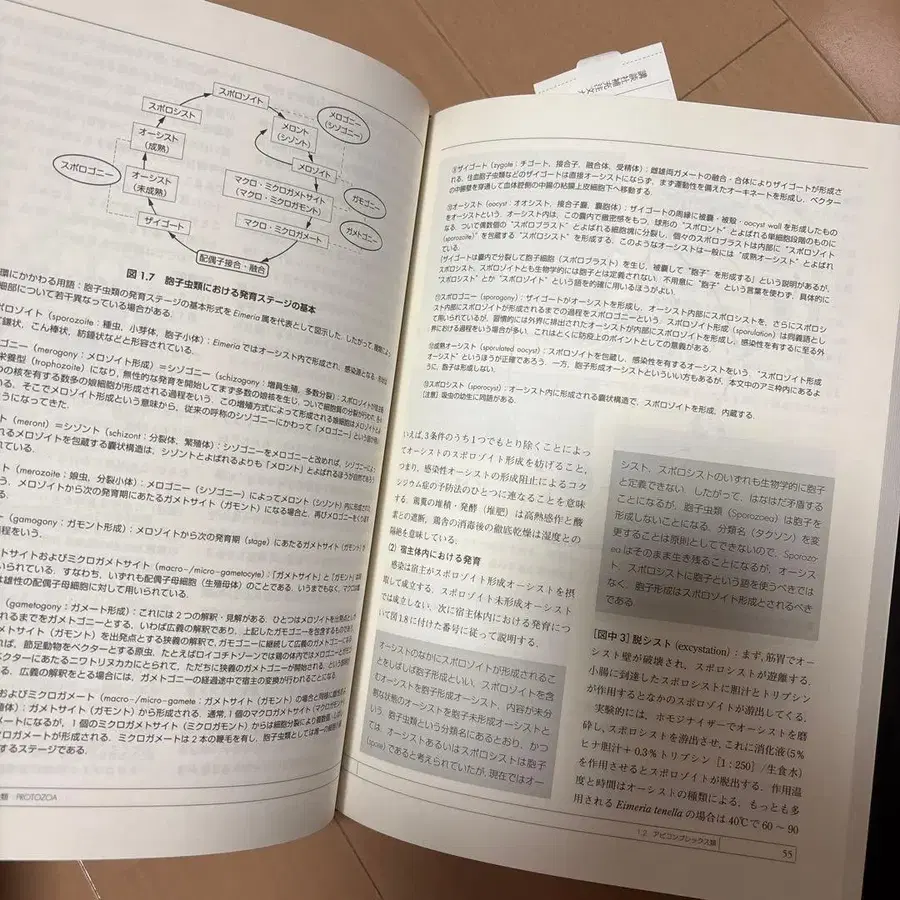 スポロゾイト
スポロシスト
オーシスト
(成熟)
スポロゴニー
オーシスト
(未成熟)
ザイゴート
配偶子接合・融合
メロント
(シゾント)
メロゴニー
(シゾゴニー)
メロゾイト
マクロ・ミクロガメトサイト
(マクロ・ミクロガモント)
ガモゴニー
マクロ・ミクロガメート
ガメトゴニー
図 1.7 胞子虫類における発育ステージの基本
環にかかわる用語:胞子虫類の発育ステージの基本形式を Eimeria 属を代表として図示した.したがって,
細部について若干異なっている場合がある.
ロゾイト (sporozoite:種虫,小芽体,胞子小体):Eimeria ではオーシスト内で形成され,感染源となる.
鎌状,こん棒状,紡錘状などと形容されている.
ゴニー (merogony:メロゾイト形成)=シゾゴニー (schizogony:増員生殖,多数分裂):スポロゾイトが
栄養型 (trophozoite) になり,無性的な発育を開始してまず多数の核を生じ,ついで細胞質の分裂が行われ,
の核を有する多数の娘細胞が形成される過程をいう.この増殖方式によって形成される娘細胞はメロゾイト
る.そこでメロゾイト形成という意味から,従来の呼称のシゾゴニーにかわって「メロゴニー」という語が
うになってきた.
(meront)=シゾント (schizont:分裂体,繁殖体):シゾゴニーをメロゴニーと改めれば,シゾゴニーによ
れるメロゾイトを包蔵する嚢状構造は,シゾントとよばれるよりも「メロント」とよばれるほうが自然であろう
ている.
ト (merozoite:娘虫,分裂小体):メロゴニー (シゾゴニー) によってメロント (シゾント) 内に形成され
う.メロゾイトから次の発育期にあたるガメトサイト (ガモント) になる場合と,再びメロゴニーをくり返す
る.
(gamogony:ガモント形成):メロゾイトから次の発育期 (stage) にあたるガメトサイト (ガモント) を
程をいう.
トサイトおよびミクロガメトサイト (macro-/micro-gametocyte):「ガメトサイト」と「ガモント」は同
いられている.すなわち,いずれも配偶子母細胞 (生殖母体) のことである.いうまでもなく,マクロは
は雄性の配偶子母細胞に対して用いられている.
(gametogony:ガメート形成):これには2つの解釈・見解がある.ひとつはメロゾイトを出発点とし
れるまでをガメトゴニーとする.いわば広義の解釈であり,上記したガモゴニーを包含するものである.
メトサイト (ガモント) を出発点とする狭義の解釈で,ガモゴニーに継続して広義のガメトゴニーに
れば,節足動物をベクターとする原虫,たとえばロイコチトゾーンでは鶏の体内ではメロゴニーとガ
ベクターにあたるニワトリヌカカにとられて,ただちに狭義のガメトゴニーが開始される,という
る.広義の解釈をとる場合には,ガメトゴニーの経過途中で宿主の変換が行われることになる.
およびミクロガメート (macro-/micro-gamete:ガメトサイト (ガモント) の場合と同様に雌性
殖体):ガメトサイト (ガモント) から形成される.通常,1個のマクロガメトサイト (マクロガモント)
メートになるが,1個のミクロガメトサイト (ミクロガモント) からは細胞分裂により複数個の
が形成される.ミクロガメートは2本の鞭毛を有し,胞子虫類としては
するステージである.
類 PROTOZOA
⑨ザイゴート (zygote:チゴート,接合子,融合体,受精体):雌雄両ガメートの融合・合体によりザイゴートが形成さ
れる.住血胞子虫類などのザイゴートは直接オーシストにならず,まず運動性を備えたオーキネートを形成し,ベクター
の中腸壁を穿通して血体腔側の中腸の粘膜上皮細胞下へ移動する.
⑩オーシスト (oocyst:オオシスト,接合子嚢,嚢胞体):ザイゴートの周縁に被嚢・被殻・oocyst wall を形成したもの
をオーシストという.オーシスト内は,この嚢内で緻密感をもつ,球形の“スポロント”とよばれる単細胞段階のものに
なる.ついで偶数個の“スポロブラスト”とよばれる細胞塊に分裂し,個々のスポロブラストは内部に“スポロゾイト
(sporozoite)”を包蔵する“スポロシスト”を形成する.このようなオーシストは一般には“成熟オーシスト”とよばれ
ている.
(ザイゴートは嚢内で分裂して胞子細胞 (スポロブラスト) を生じ,被嚢して“胞子”を形成する」という説明があるが,
スポロシスト,スポロゾイトとも生物学的には胞子とは定義されない.不用意に“胞子”という言葉を使わず,具体的に
“スポロシスト”とか“スポロゾイト”という語を的確に用いるほうがよい.
⑪スポロゴニー (sporogony):ザイゴートがオーシストを形成し,オーシスト内部にスポロシストを,さらにスポロシ
スト内部にスポロゾイトが形成されるまでの過程をスポロゴニーという.スポロゾイト形成 (sporulation) は同義語とし
て用いられているが,習慣的には外界に排出されたオーシストが内部にスポロゾイトを形成し,感染性を有するに至る外
界における過程をいう場合が多い.これはとくに防疫上のポイントとしての意義がある.
⑫成熟オーシスト (sporulated oocyst):スポロゾイトを包蔵し,感染性を有するオーシストをいう.“スポロゾイト形成
オーシスト”というほうが正確であろう.一方,胞子形成オーシストといういい方もあるが,本文中のアミ枠内にあるよ
うに,胞子は形成しない.
⑬スポロシスト (sporocyst):オーシスト内に形成される嚢状構造で,スポロゾイトを形成,内蔵する.
[注意] 吸虫の幼生に同語がある.
いえば,3条件のうち1つでもとり除くことによっ
てオーシストのスポロゾイト形成を妨げること,
つまり,感染性オーシストの形成阻止によるコク
シジウム症の予防法のひとつに連なることを意味
する.鶏糞の堆積・発酵 (堆肥) は高熱感作と酸
素との遮断,鶏舎の消毒後の徹底乾燥は湿度との
隔絶を意味している.
(2) 宿主体内における発育
感染は宿主がスポロゾイト形成オーシストを摂
取して成立する.スポロゾイト未形成オーシスト
では成立しない.次に宿主体内における発育につ
いて図1.8に付けた番号に従って説明する.
オーシストのなかにスポロゾイトが形成されるこ
とをしばしば胞子形成といい,スポロゾイトを含
むオーシストを胞子形成オーシスト,内容が未分
割な状態のオーシストを胞子未形成オーシストと
いう.胞子虫類という分類名にあるとおり,かつ
ては,オーシストあるいはスポロシストは胞子
(spore) であると考えられていたが,現在ではオー
シスト,スポロシストのいずれも生物学的に胞子
と定義できない.したがって,はなはだ矛盾する
ことになるが,胞子虫類 (Sporozoea) は胞子を
形成しないことになる.分類名 (タクソン) を変
更することは原則としてできないので,Sporozo-
ea はそのまま生き残ることになるが,オーシス
ト,スポロシストに胞子という語を使うべきでは
なく,胞子形成はスポロゾイト形成とされるべき
である.
[図中 3] 脱シスト (excystation):まず,筋胃でオー
シスト壁が破壊され,スポロシストが遊離する.
小腸に到達したスポロシストに胆汁とトリプシン
が作用するとなかのスポロゾイトが游出してくる.
実験的には,ホモジナイザーでオーシストを磨
砕し,スポロシストを游出させ,これに消化液(5%
ヒナ胆汁+0.3%トリプシン [1:250]/生食水)
を作用させるとスポロゾイトが脱出する.作用温
度と時間はオーシストの種類による.もっとも多
用される Eimeria tenella の場合は40℃で60〜90
1.2 アピコンプレックス類
55